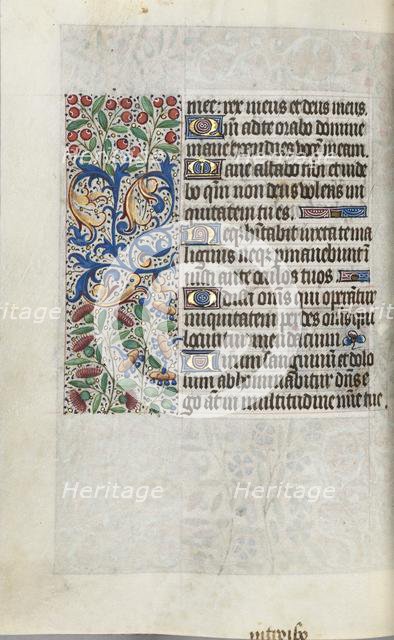 mee: rex meus et deus meus.
Qm̄ ad te orabo domine
mane exaudies vocē meam.
Mane astabo tibi et uide
bo qm̄ non deus volens ini
quitatem tu es.
Neq̄ hītabit iuxta te ma
lignus neq̄ p̄manebunt
ante oculos tuos
Odisti om̄s qui operātur
iniquitatem perdes om̄s qui
locuntur mendacium
Uirum sanguinum et dolo
sum abhominabitur dn̄s e
go aūt in multitudine
introibo
Heritage Heritage
Heritage Heritage
Heritage Heritage